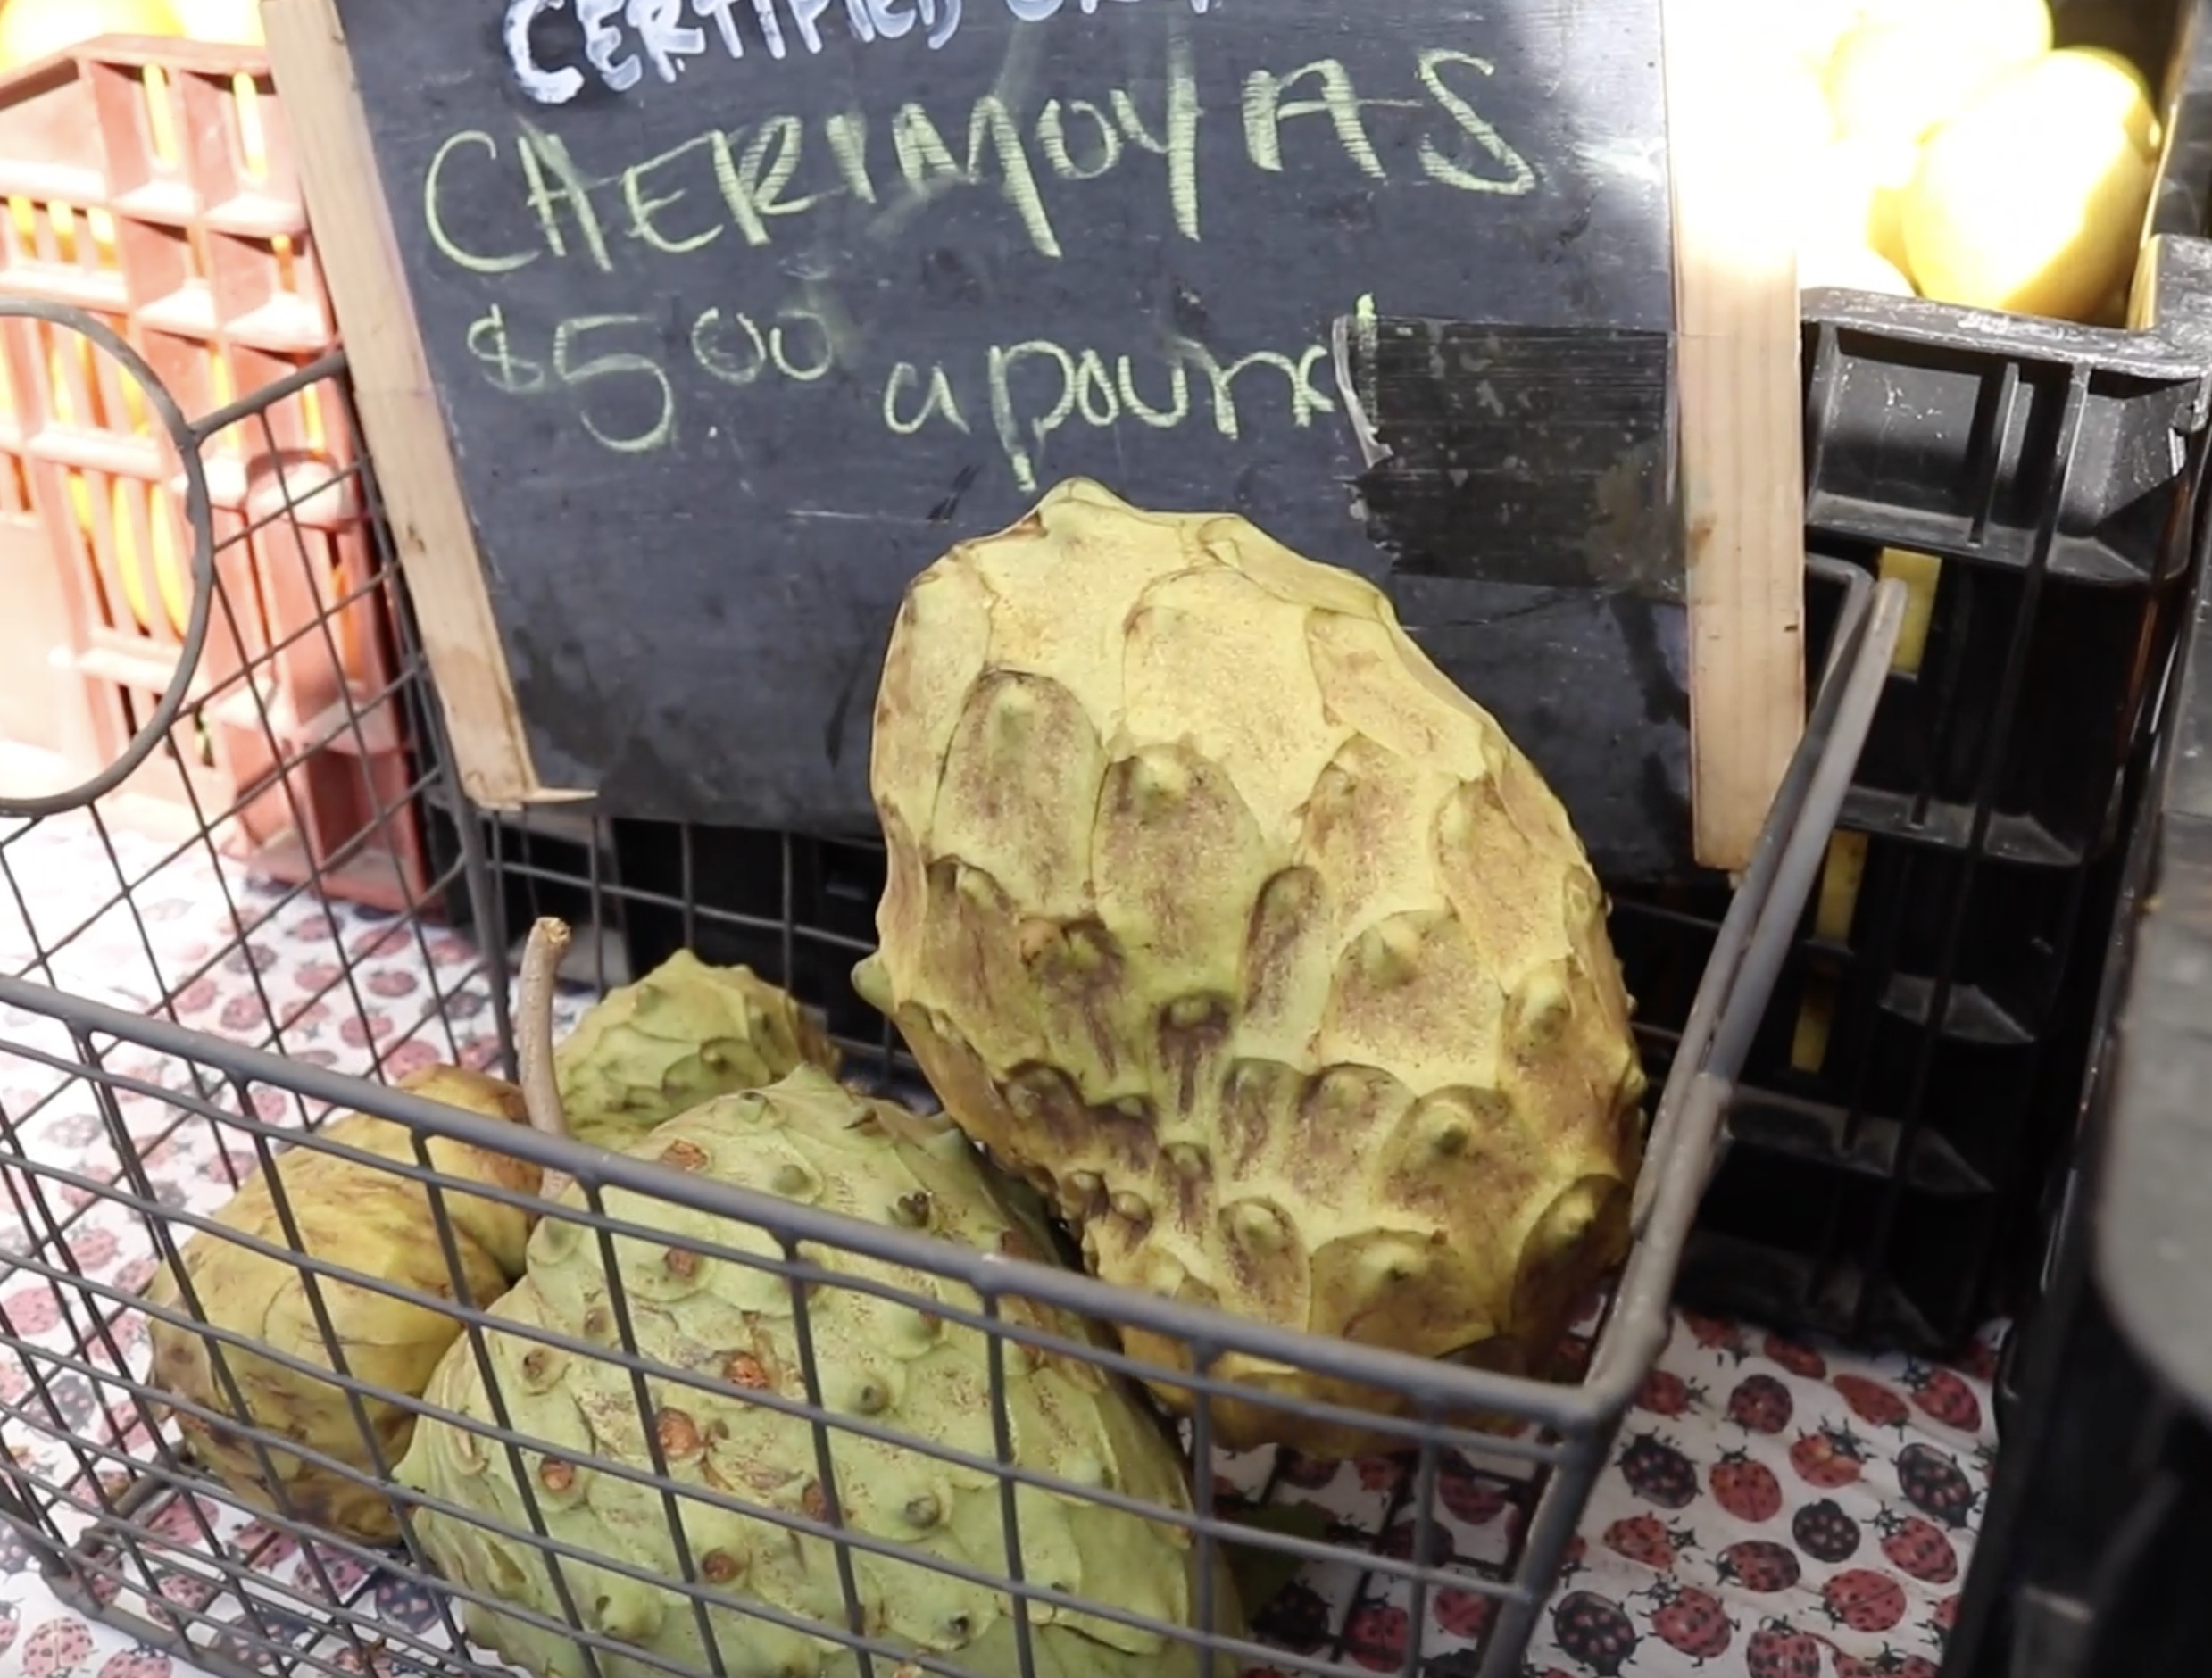 CERTIFIED
CHERIMOYAS
$5.00 a pound